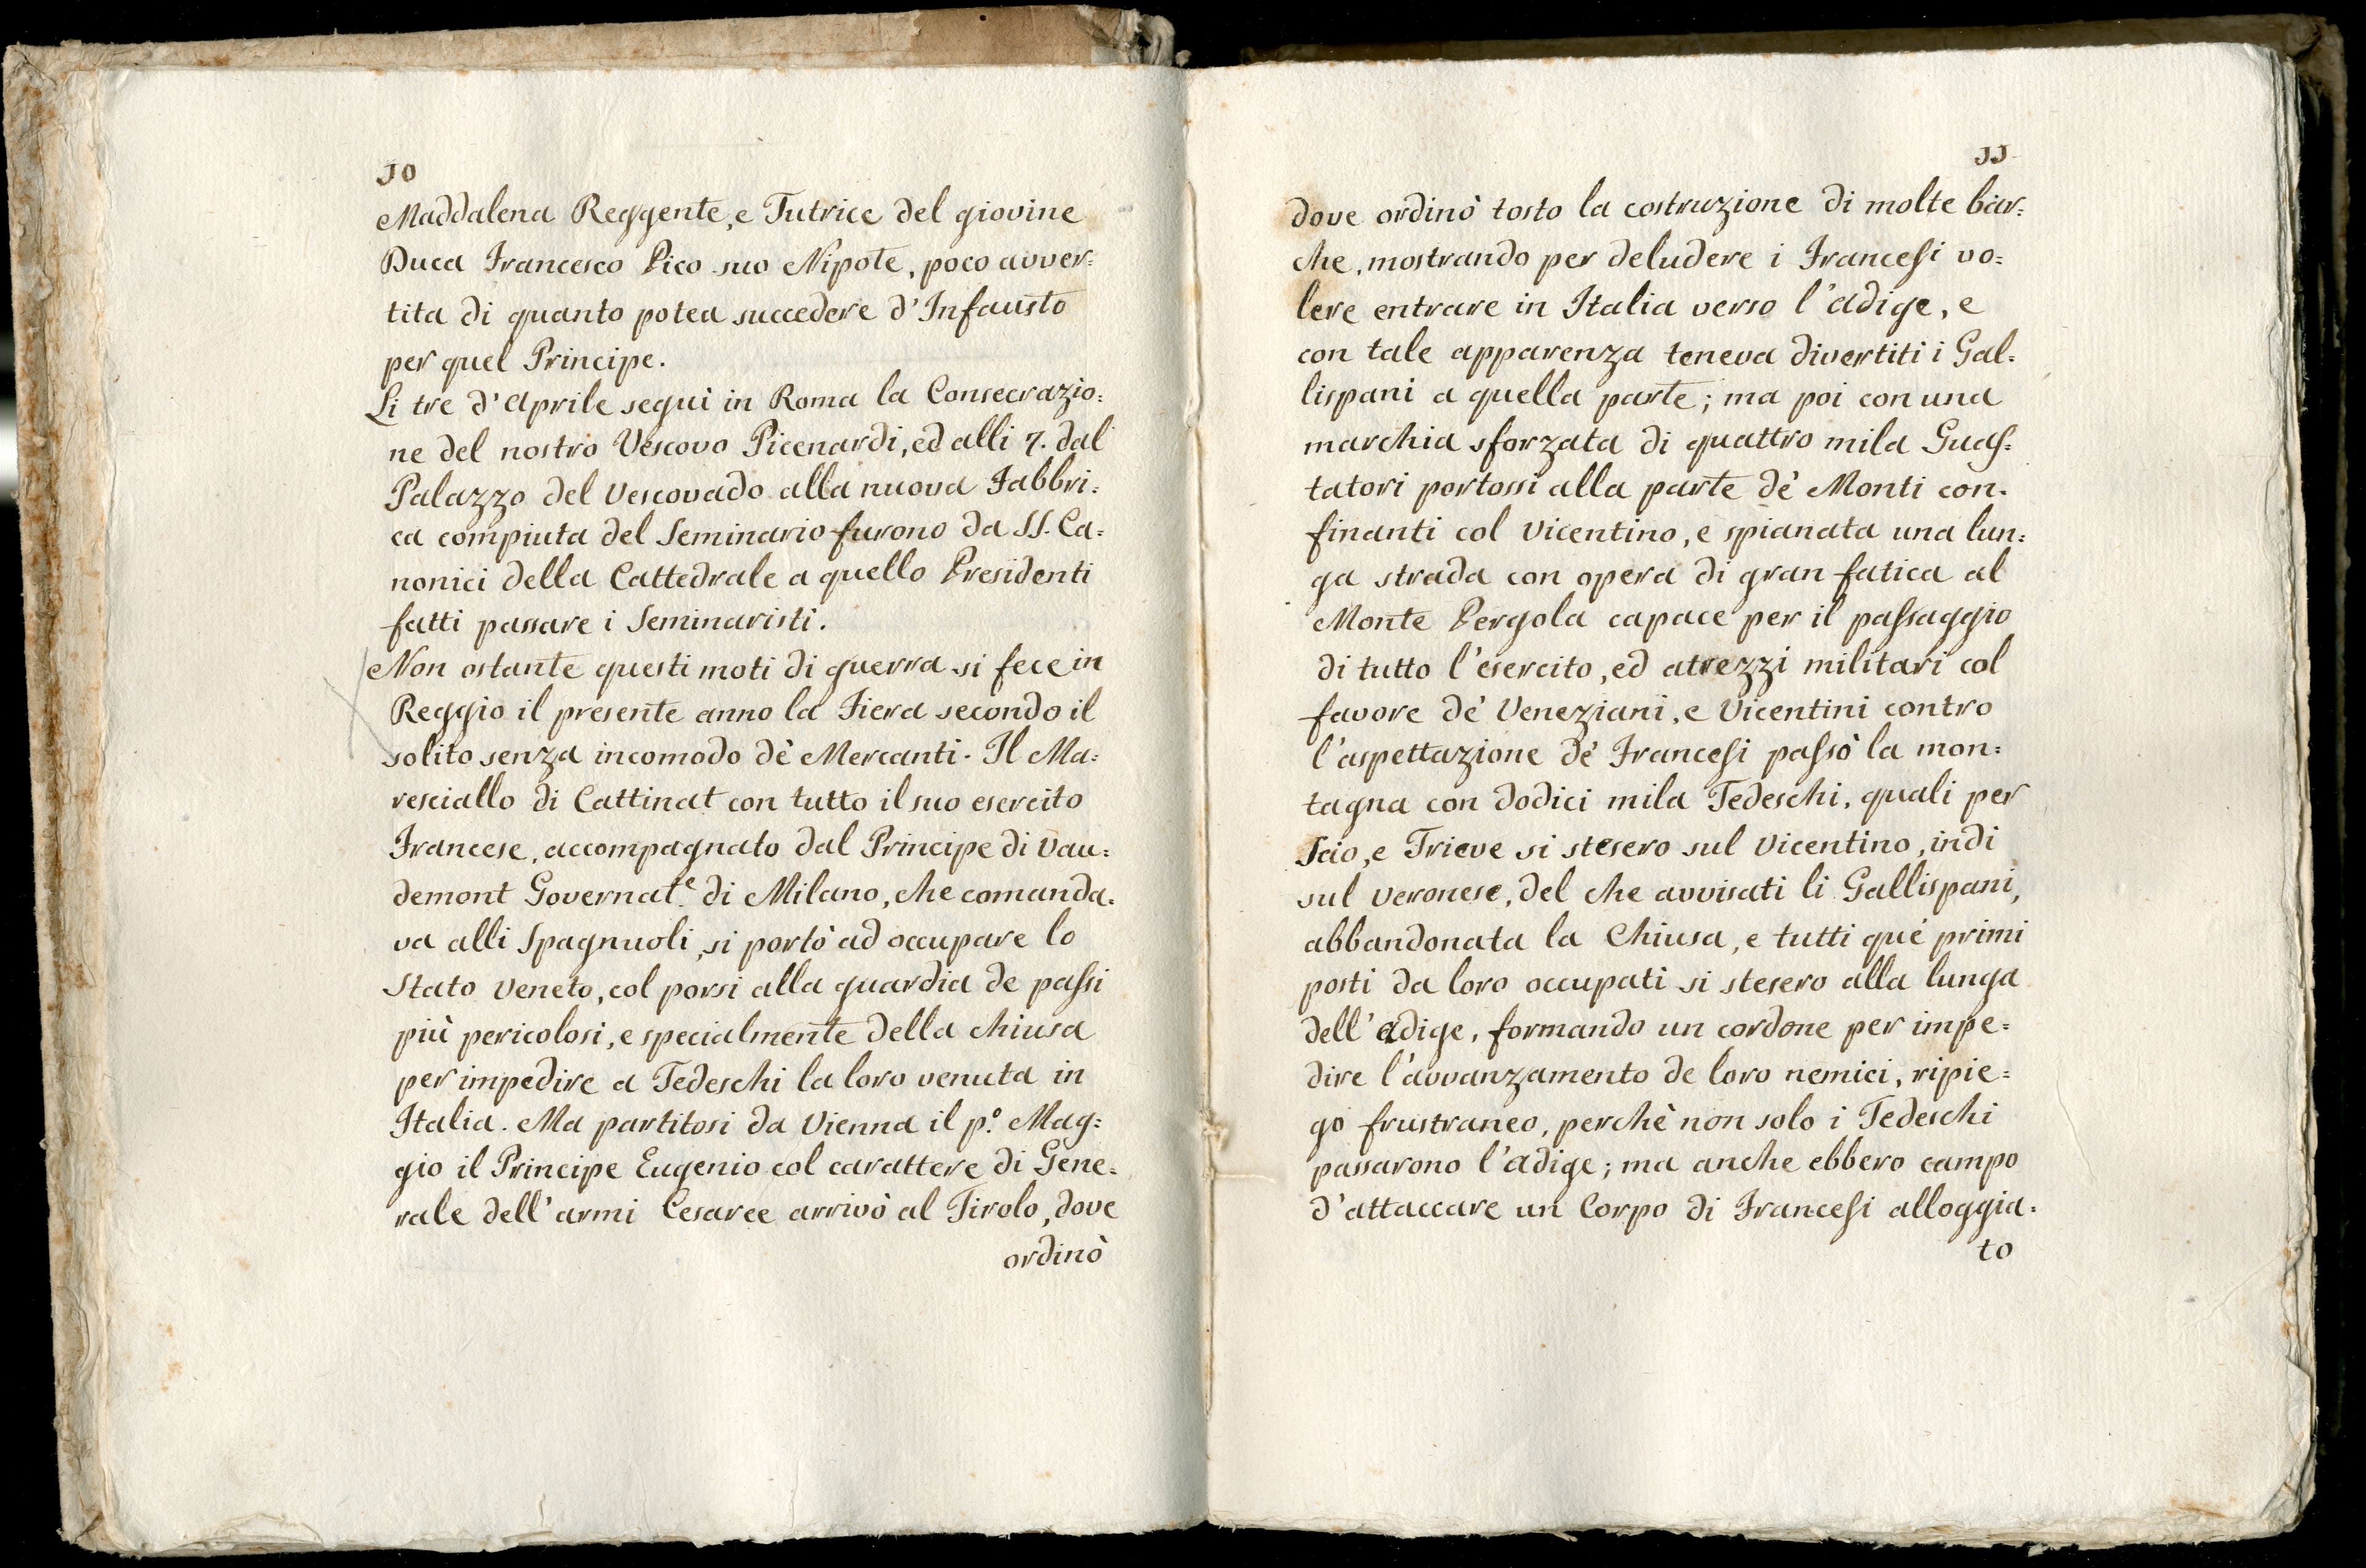 10
Maddalena Reggente, e Tutrice del giovine
Duca Francesco Pico suo Nipote, poco avver=
tita di quanto potea succedere d'Infausto
per quel Principe.
Li tre d'Aprile seguì in Roma la Consecrazio=
ne del nostro Vescovo Picenardi, ed alli 7. dal
Palazzo del Vescovado alla nuova Fabbri=
ca compiuta del Seminario furono da SS. Ca=
nonici della Cattedrale a quello Presidenti
fatti passare i Seminaristi.
Non ostante questi moti di guerra si fece in
Reggio il presente anno la Fiera secondo il
solito senza incomodo de' Mercanti. Il Ma=
resciallo di Cattinat con tutto il suo esercito
Francese, accompagnato dal Principe di Vau=
demont Governat.e di Milano, che comanda=
va alli Spagnuoli, si portò ad occupare lo
Stato Veneto, col porsi alla guardia de passi
più pericolosi, e specialmente della Chiusa
per impedire a Tedeschi la loro venuta in
Italia. Ma partitosi da Vienna il p.o Mag=
gio il Principe Eugenio col carattere di Gene=
rale dell'armi Cesaree arrivò al Tirolo, dove
ordinò
11
dove ordinò tosto la costruzione di molte bar=
che, mostrando per deludere i Francesi vo=
lere entrare in Italia verso l'Adige, e
con tale apparenza teneva divertiti i Gal=
lispani a quella parte; ma poi con una
marchia sforzata di quattro mila Guas=
tatori portossi alla parte de' Monti con=
finanti col Vicentino, e spianata una lun=
ga strada con opera di gran fatica al
Monte Pergola capace per il passaggio
di tutto l'esercito, ed atrezzi militari col
favore de' Veneziani, e Vicentini contro
l'aspettazione de' Francesi passò la mon=
tagna con dodici mila Tedeschi, quali per
Scio, e Trieve si stesero sul Vicentino, indi
sul Veronese, del che avvisati li Gallispani,
abbandonata la Chiusa, e tutti que' primi
posti da loro occupati si stesero alla lunga
dell'Adige, formando un cordone per impe=
dire l'avvanzamento de loro nemici, ripie=
go frustraneo, perchè non solo i Tedeschi
passarono l'Adige; ma anche ebbero campo
d'attaccare un Corpo di Francesi alloggia=
to